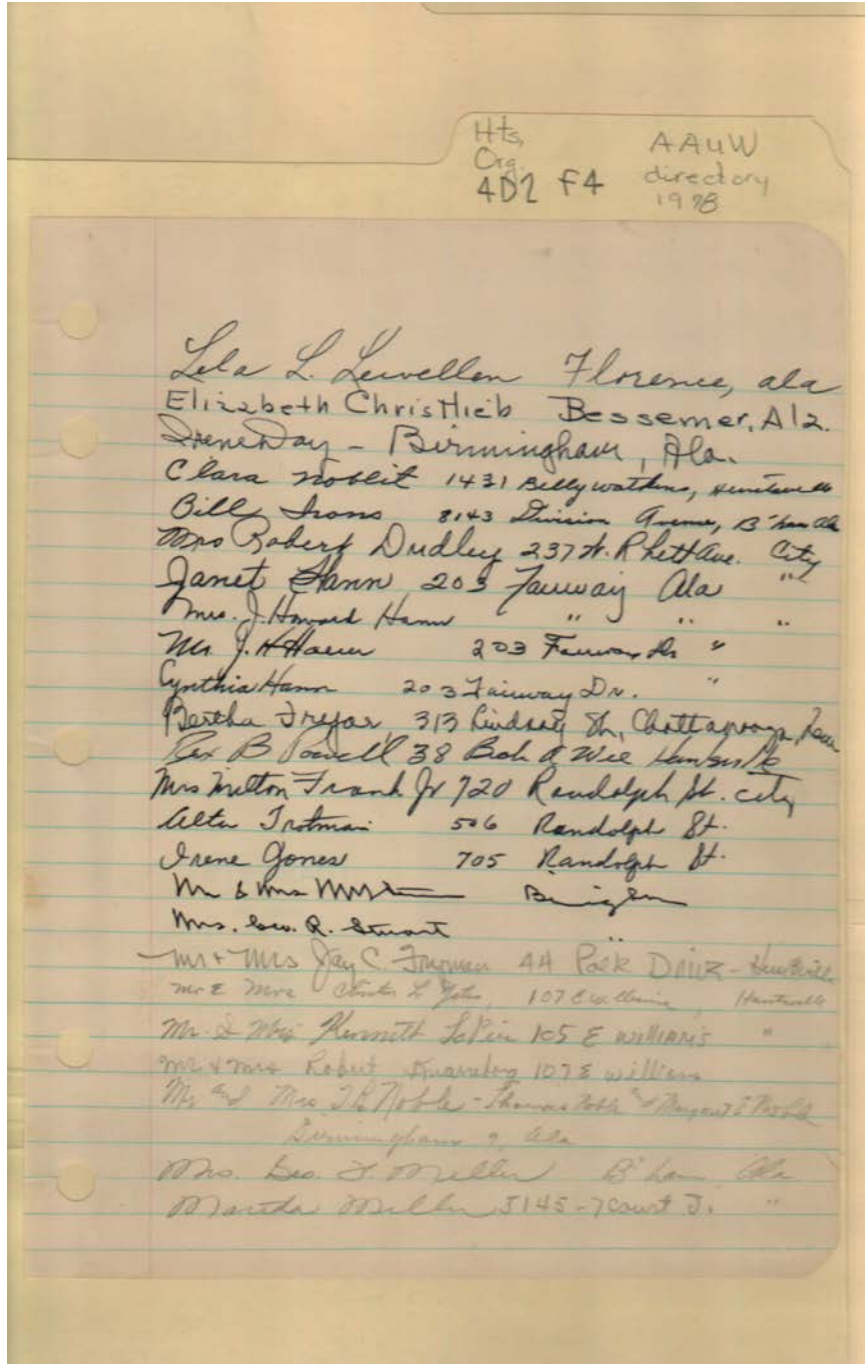 Hts,
Org.
4D2 F4
AAUW
directory
1978
Lela L. Lewellen Florence, ala
Elizabeth Christlieb Bessemer, Ala.
Irene Day - Birmingham, Ala.
Clara Noblit 1431 Billy Watkins, Huntsville
Bill Irons 8143 Division Avenue, B'ham Ala
Mrs Robert Dudley 237 W. Rhett Ave. City
Janet Hann 203 Fairway Ala "
Mrs. J. Howard Hann " " "
Mr J. H Hann 203 Fairway Dr "
Cynthia Hann 203 Fairway Dr. "
Bertha Fryar 313 Lindsay St, Chattanooga, Tenn
Rex B Powell 38 Bob A Wil Huntsville
Mrs Milton Frank Jr 720 Randolph St. city
Trotman 506 Randolph St.
Irene Jones 705 Randolph St.
Mr & Mrs
Mrs. Geo. R. Stuart "
Mr + Mrs Jay C. 44 Park Drive - Huntsville
Mr & Mrs L Yates, 107 E Williams, Huntsville
Mr & Mrs Kenneth LaPier 105 E Williams "
Mr & Mrs Robert 107 E Williams
Mr and Mrs T B Noble - Thomas Noble and Margaret E Noble
Birmingham 9, Ala
Mrs. Geo. F. Miller B'ham, Ala
Martha Miller 5145 - 7 Court S. "